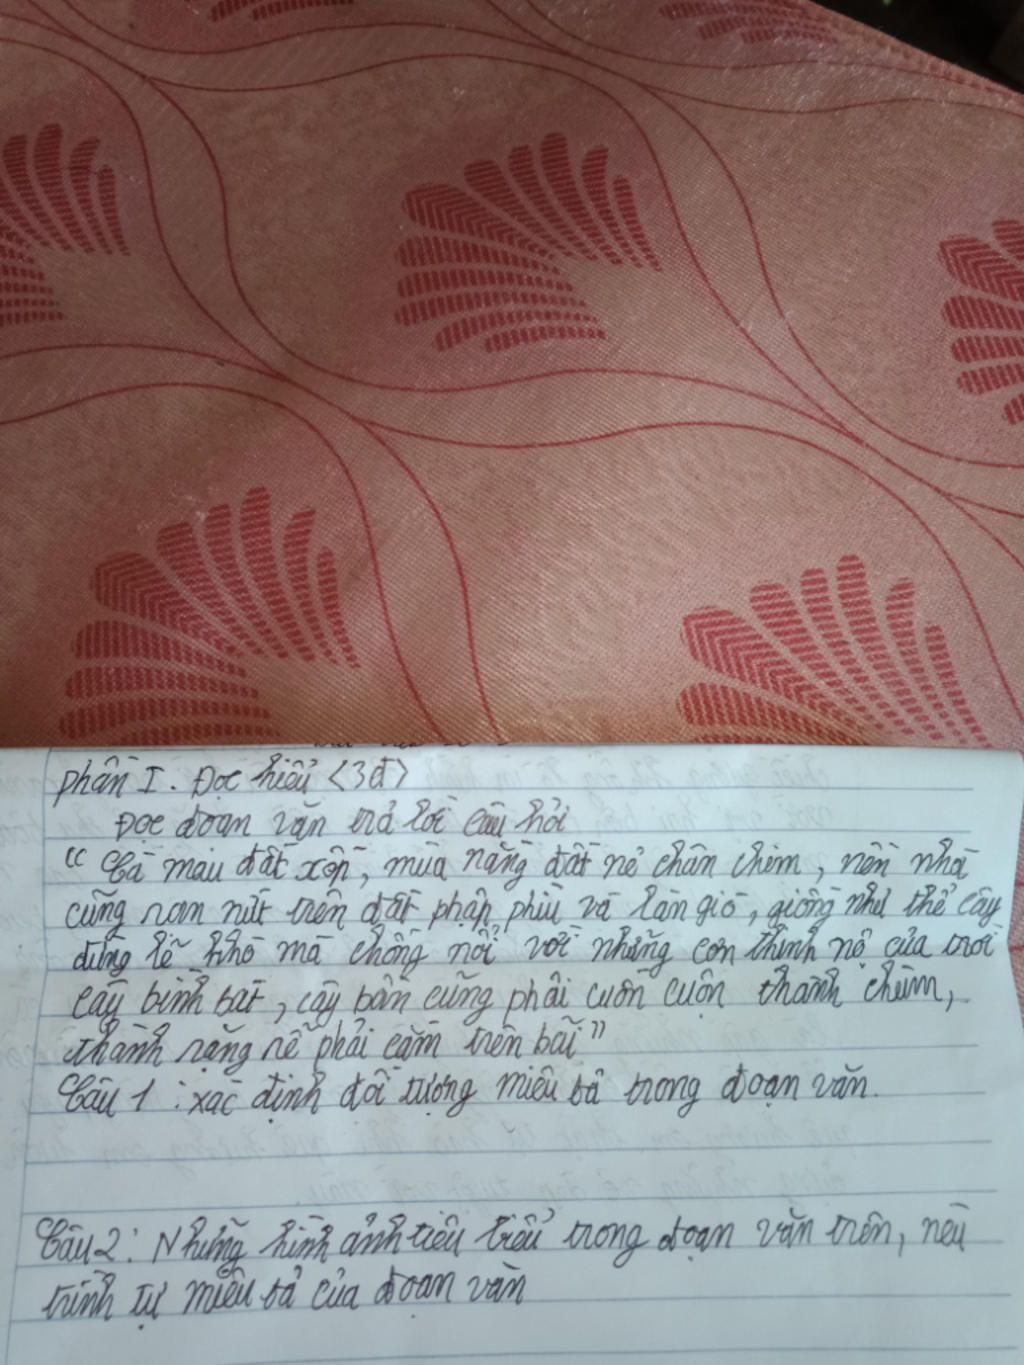 phần I. Đọc hiểu <3đ>
Đọc đoạn văn trả lời câu hỏi
"Cà mau đất xốp, mùa nắng đất nẻ chân chim, nền nhà
cũng rạn nứt trên đất phập phìu và lắm gió, giông như thế cây
đứng lẽ khó mà chống nổi với những cơn thịnh nộ của trời
cây bình bát, cây bần cũng phải cuốn cuộn thành chùm,
thành rặng rễ phải cắm trên bãi"
Câu 1: xác định đối tượng miêu tả trong đoạn văn.
Câu 2: Những hình ảnh tiêu biểu trong đoạn văn trên, nêu
trình tự miêu tả của đoạn văn